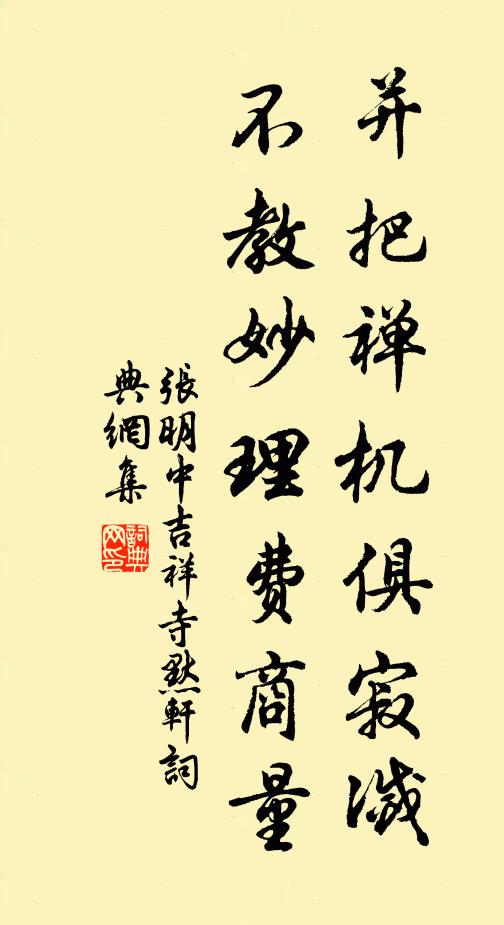 并把禅机俱寂滅
不教妙理费商量
張明中吉祥寺默軒詞
典網集
詞典
网印